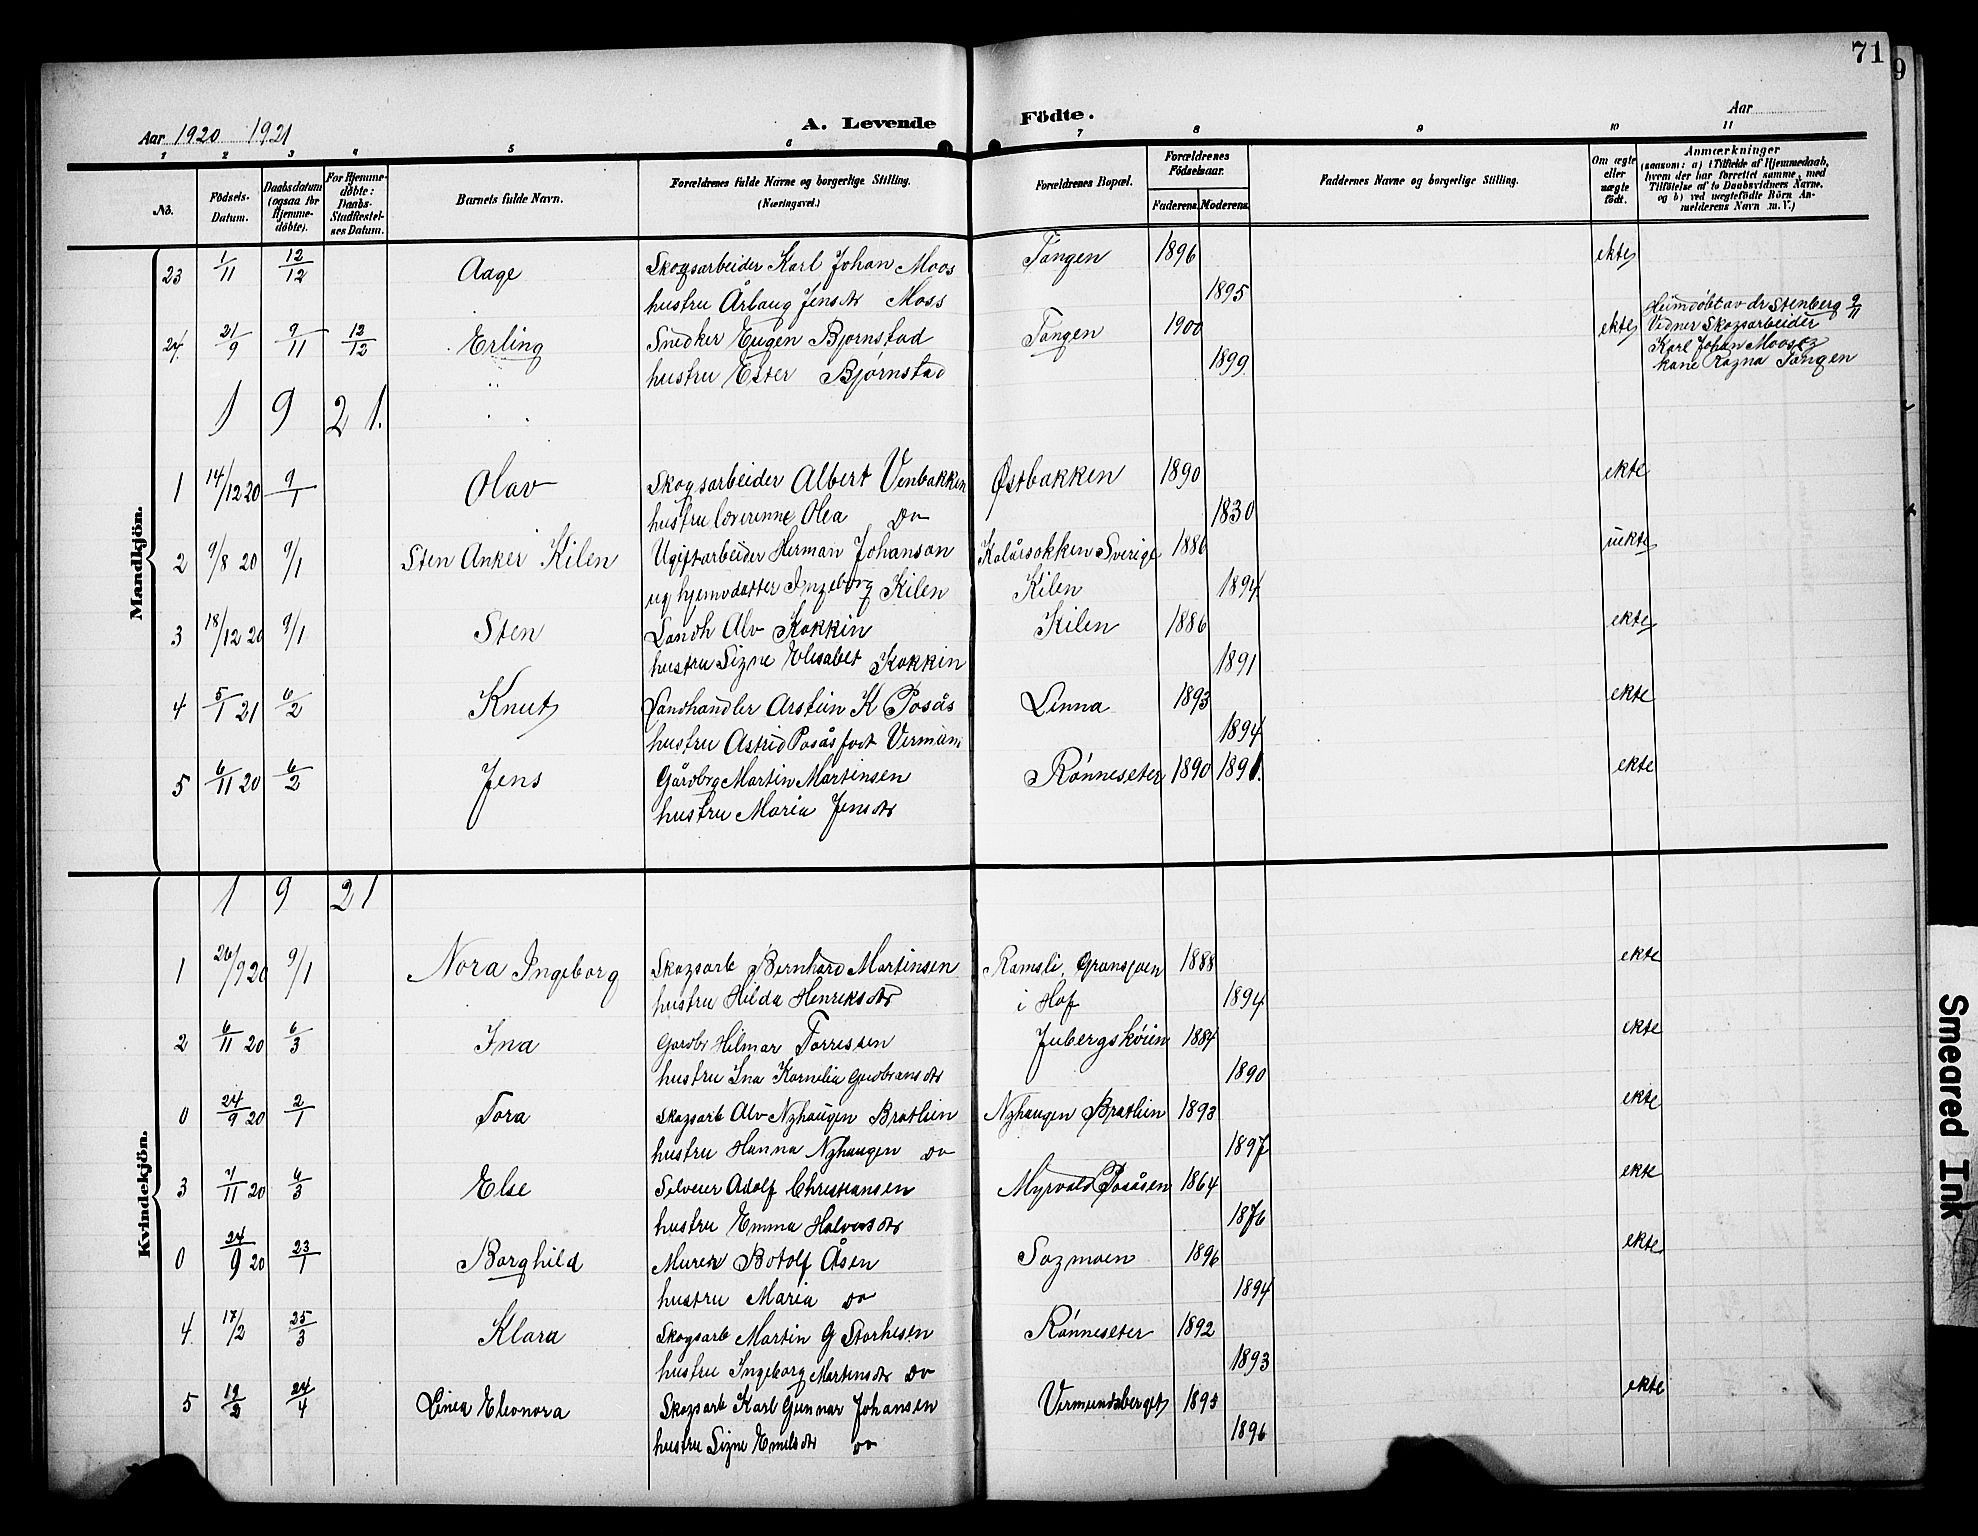 71
9
Aar 1920 1921
A. Levende Födte.
Aar
1 2 3 4 5 6 7 8 9 10 11
No.
Födsels-Datum.
Daabsdatum (ogsaa for Hjemme-döbte).
For Hjemme-döbte: Daabs-Stadfæstel-ses Datum.
Barnets fulde Navn.
Forældrenes fulde Navne og borgerlige Stilling.
(Næringsvei.)
Forældrenes Bopæl.
Forældrenes Födselsaar.
Faderens. Moderens.
Faddernes Navne og borgerlige Stilling.
Om ægte eller uægte født.
Anmærkninger
(saasom: a) i Tilfælde af Hjemmedaab,
hvem der har forrettet samme, med
Tilföielse af to Daabsvidners Navne,
og b) ved uægtefödte Börn An-
melderens Navn m. V.)
Mandkjön.
23 1/11 12/12 Aage Skogsarbeider Karl Johan Moos Tangen 1896 ekte
hustru Årlaug Jensdtr Moss 1895
24 21/9 9/11 12/12 Erling Snedker Eugen Bjørnstad Tangen 1900 ekte
hustru Ester Bjørnstad 1899
Heimdøbt av dr Stenberg 9/11
Vidner Skogsarbeider
Karl Johan Moos og
kone Ragna Tangen
1 9 21.
1 14/12 20 9/1 Olav Skogsarbeider Albert Venbakken Østbakken 1890 ekte
hustru lærerinne Olea Do 1830
2 9/8 20 9/1 Sten Anker Kilen Ugift arbeider Herman Johanson Kalårsokken Sverige 1886 uekte
ug hjemvdatter Ingeborg Kilen Kilen 1894
3 18/12 20 9/1 Sten Landh Alv Kokkin Kilen 1886 ekte
hustru Signe Elisabet Kokkin 1891
4 5/1 21 6/2 Knut Landhandler Arstein K Posås Linna 1893 ekte
hustru Astrid Posås født Vermun 1894
5 6/11 20 6/2 Jens Gårdbr Martin Martinsen Rønneseter 1890 1891. ekte
hustru Maria Jensdtr
Kvindekjön.
1 9 21
1 26/9 20 9/1 Nora Ingeborg Skogsarb Bernhard Martinsen Ramsli, Gransjøen 1888 ekte
hustru Hilda Henriksdtr i Hof 1894
2 6/11 20 6/3 Ina Gardbr Hilmar Torressen Jubergskøien 1884 ekte
hustru Ina Kornelia Gudbransdtr 1890
0 24/9 20 2/1 Tora Skogsarb Alv Nyhaugen Bratlien Nyhaugen Bratlien 1893 ekte
hustru Hanna Nyhaugen do 1897
3 7/11 20 6/3 Else Selveier Adolf Christiansen Myrvold Posåsen 1864 ekte
hustru Emma Halvorsdtr 1876
0 24/9 20 23/1 Borghild Murer Botolf Åsen Sagmoen 1896 ekte
hustru Maria do 1894
4. 17/2 25/3 Klara Skogsarb Martin G Storhesen Rønneseter 1892
hustru Ingeborg Martinsdtr Do 1893
5 12/2 24/4 Linea Eleonora Skogsarb Karl Gunnar Johansen Vermundsberget 1895 ekte
hustru Signe Emilsdtr do 1896
Smeared Ink